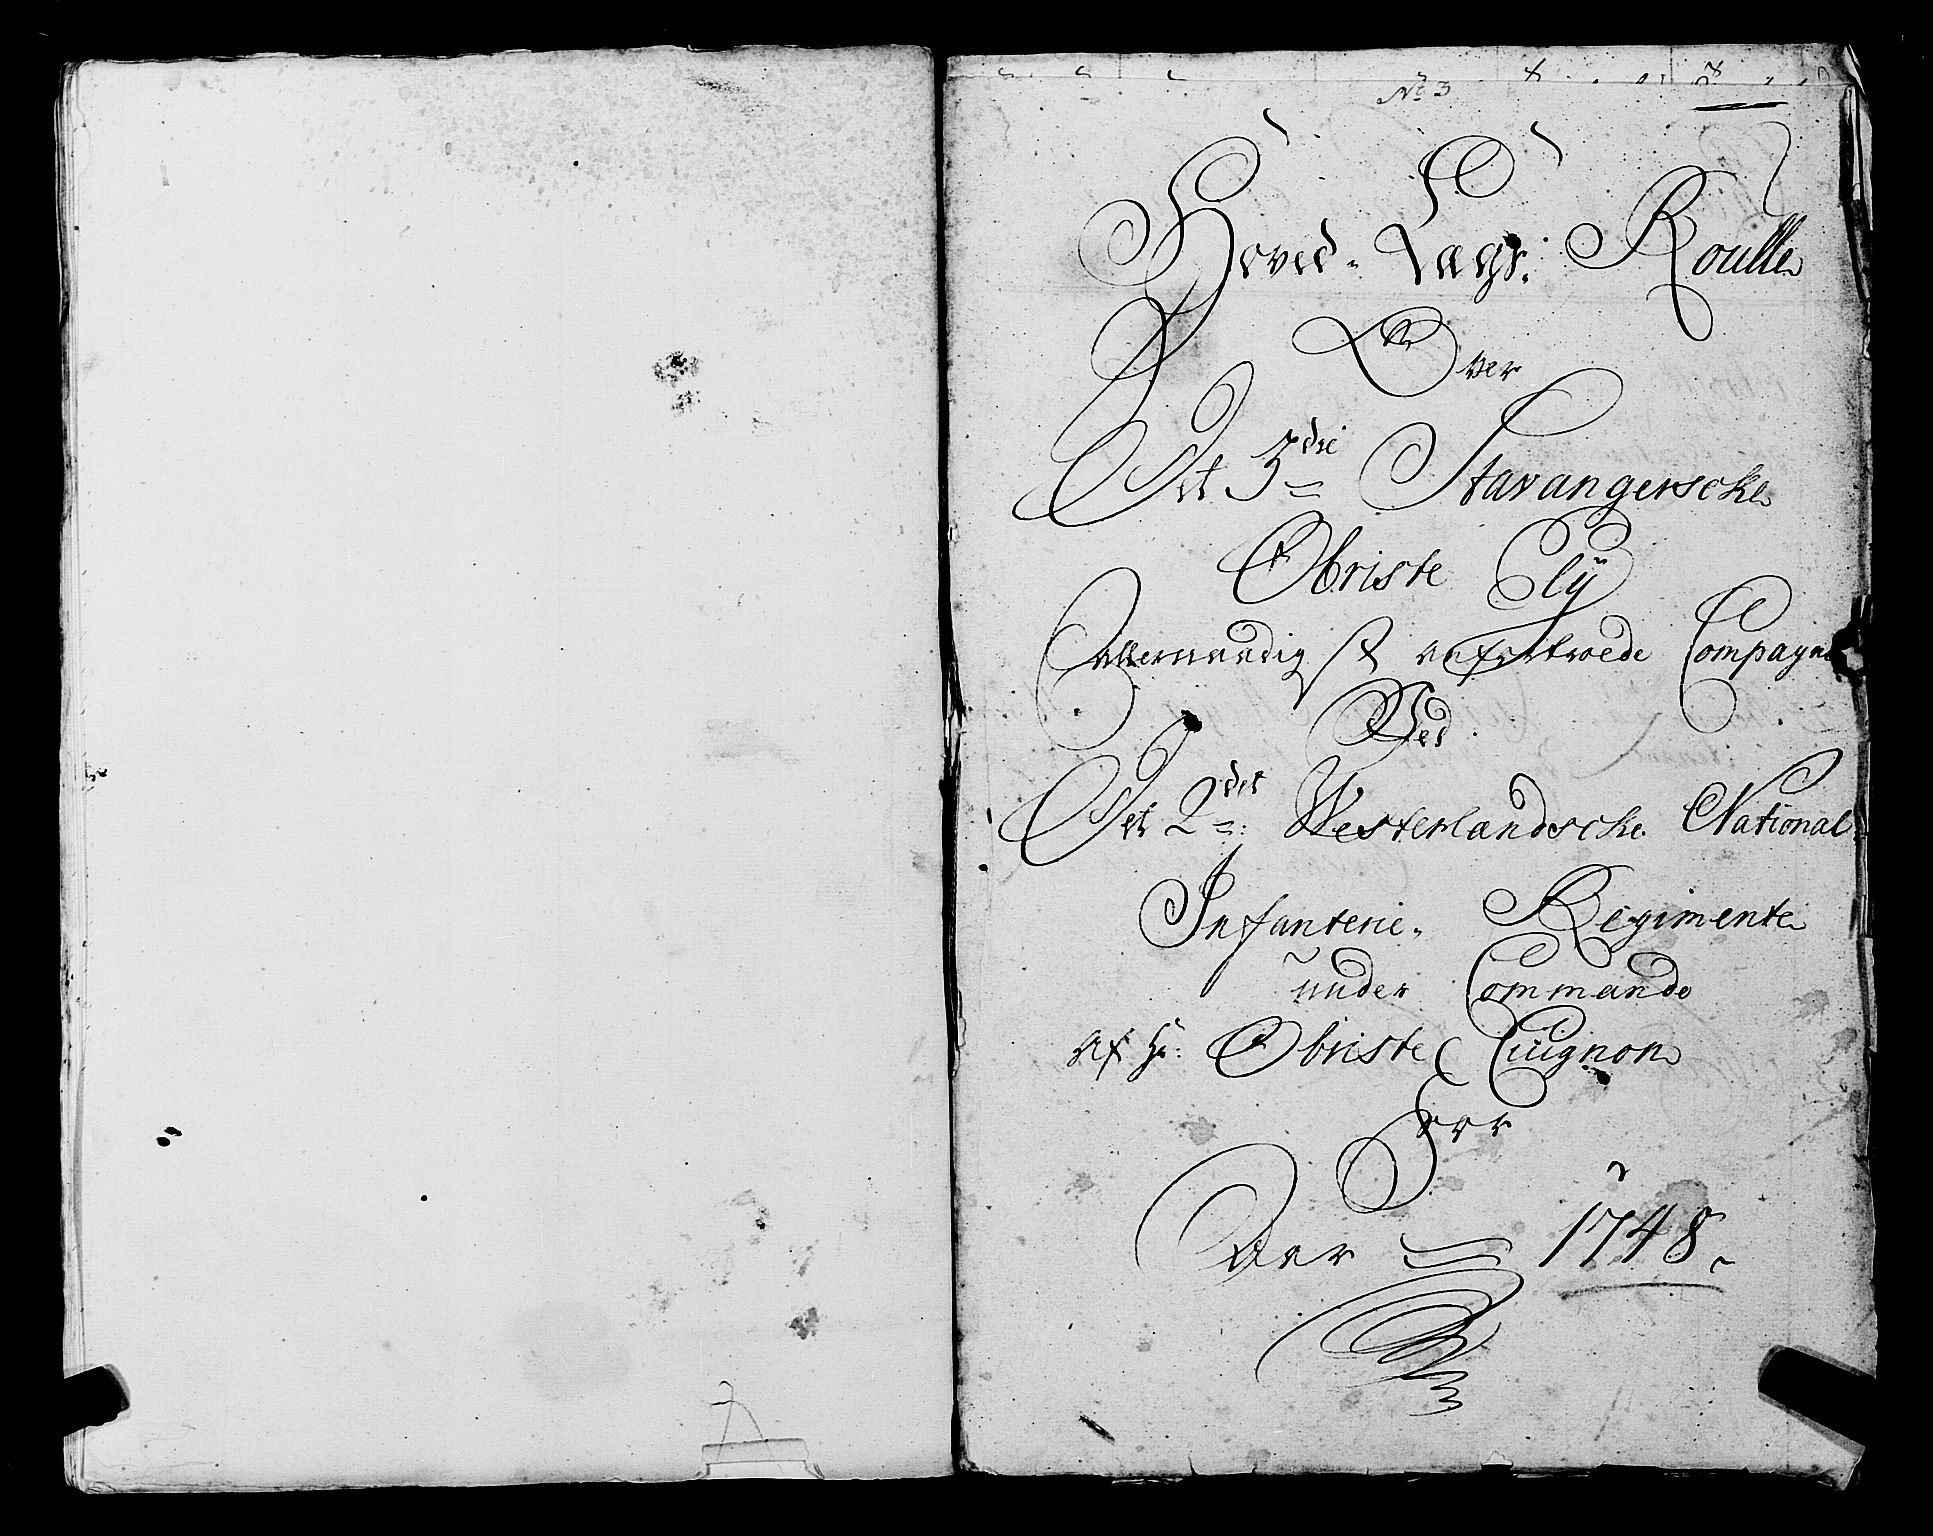 No 3
Hoved- Lægs: Roulle
Over
Det 3die Stavangerscke
Obriste Ely
Allernaadigst anfortroede Compagnie
Ved
Det 2det Westerlandscke National
Infanterie- Regimente
under Commando
af Hr: Obriste Cuignon
For
Aar 1748